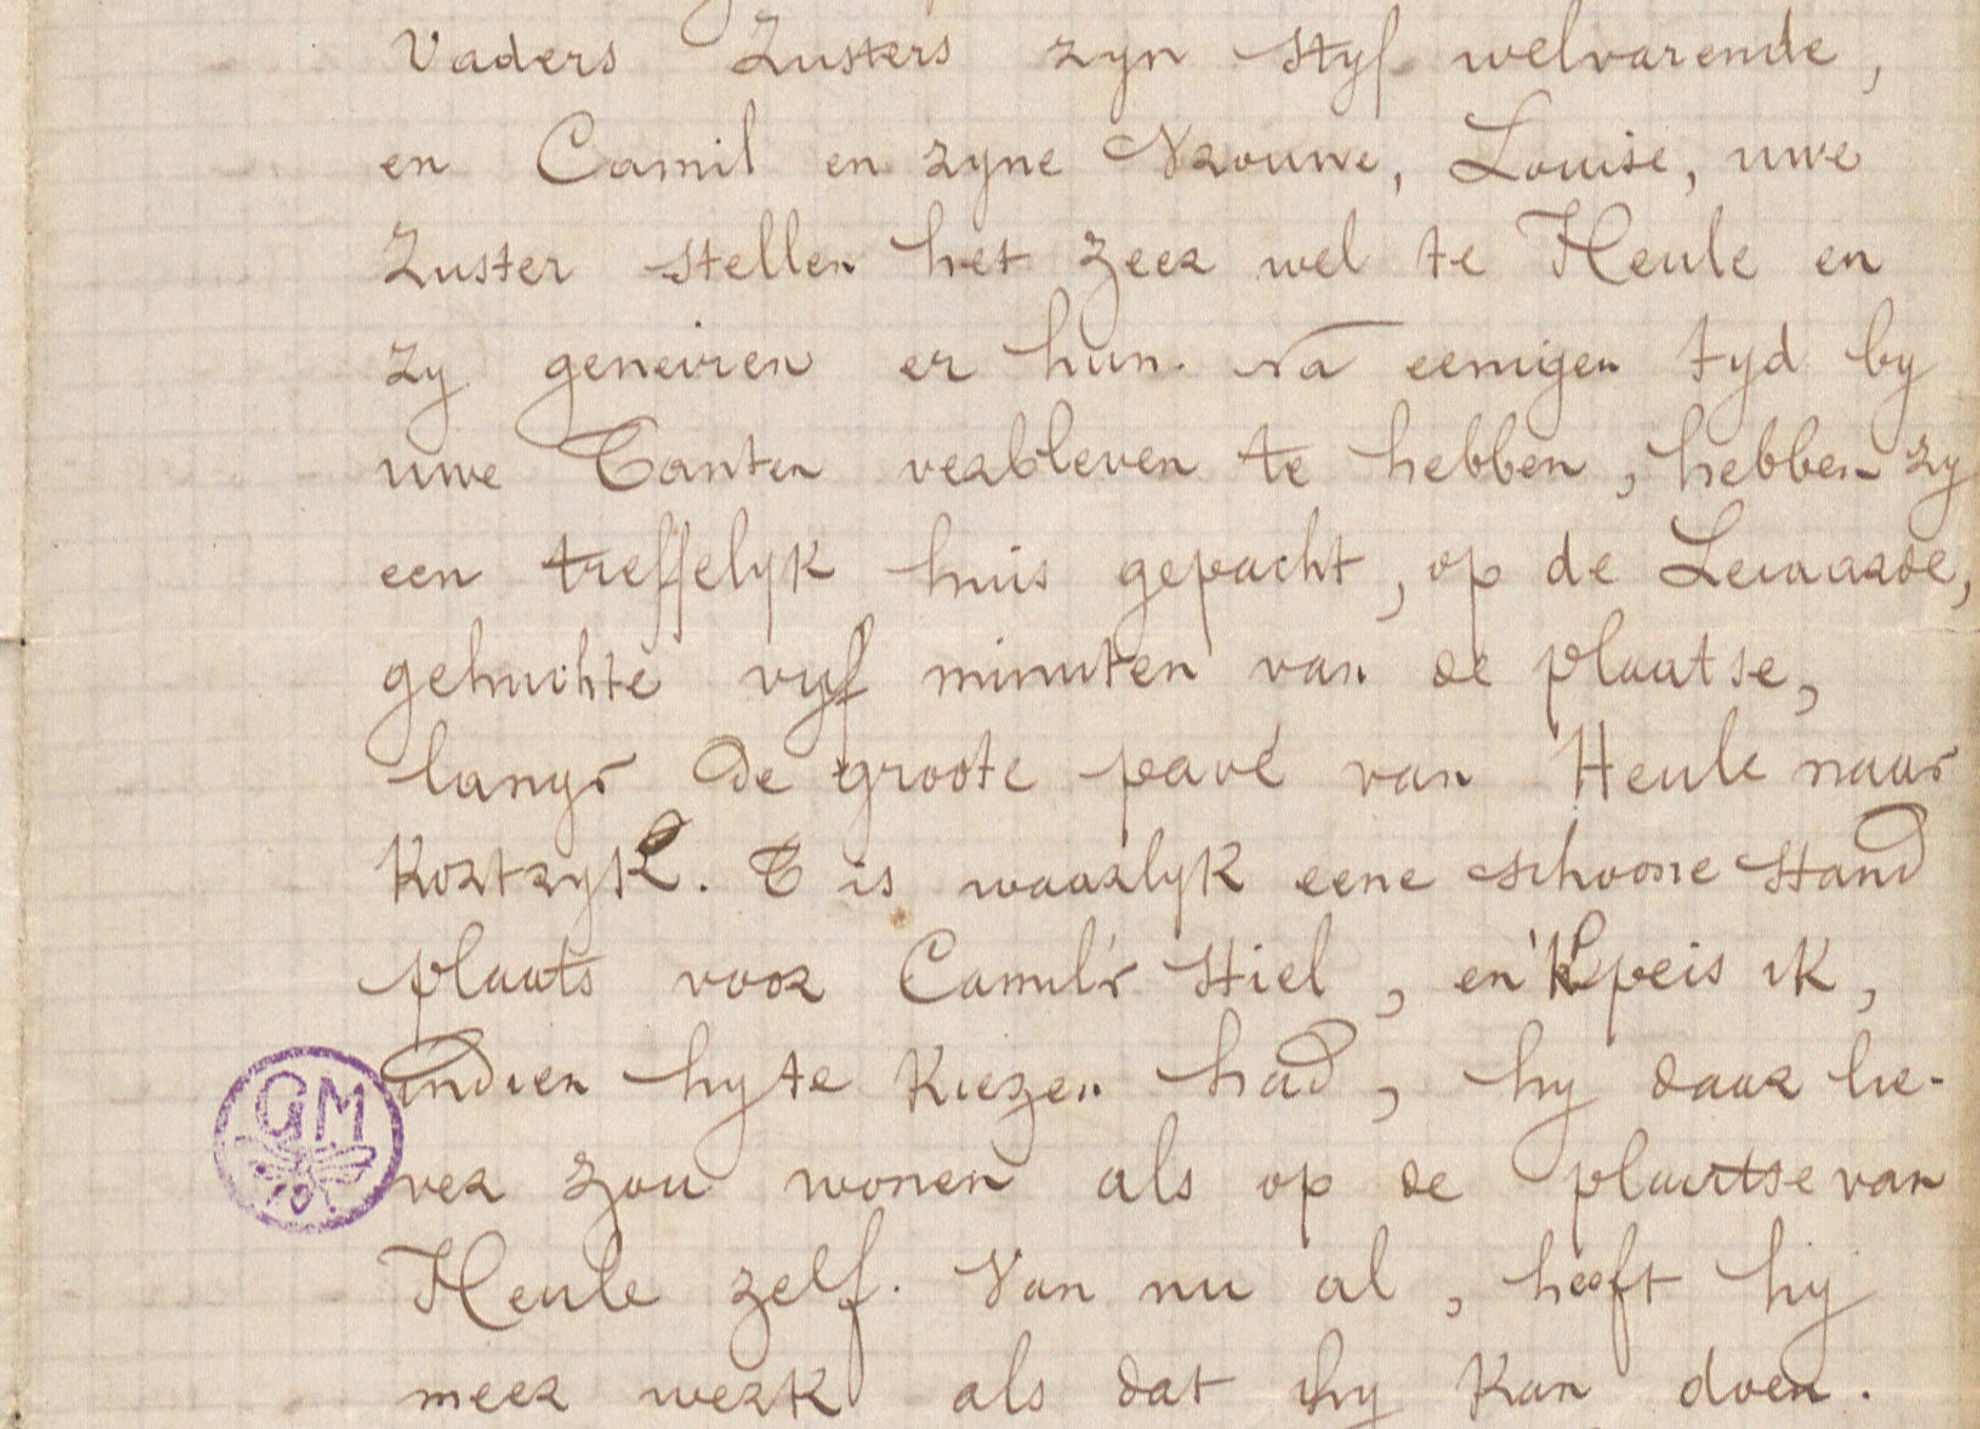 Vaders Zusters zyn styf welvarende,
en Camil en zyne Vrouwe, Louise, uwe
Zuster stellen het zeer wel te Heule en
zy geneiren er hun. Na eenigen tyd by
uwe Tanten verbleven te hebben, hebben zy
een treffelyk huis gepacht, op de Leiaarde,
gehuchte vyf minuten van de plaatse,
langs de groote pavé van Heule naar
Kortryk. T is waarlyk eene schoone stand
plaats voor Camil's stiel, en 'k peis ik,
indien hy te kiezen had, hy daar lie-
ver zou wonen als op de plaatse van
Heule zelf. Van nu al, heeft hy
meer werk als dat hy kan doen.
GM